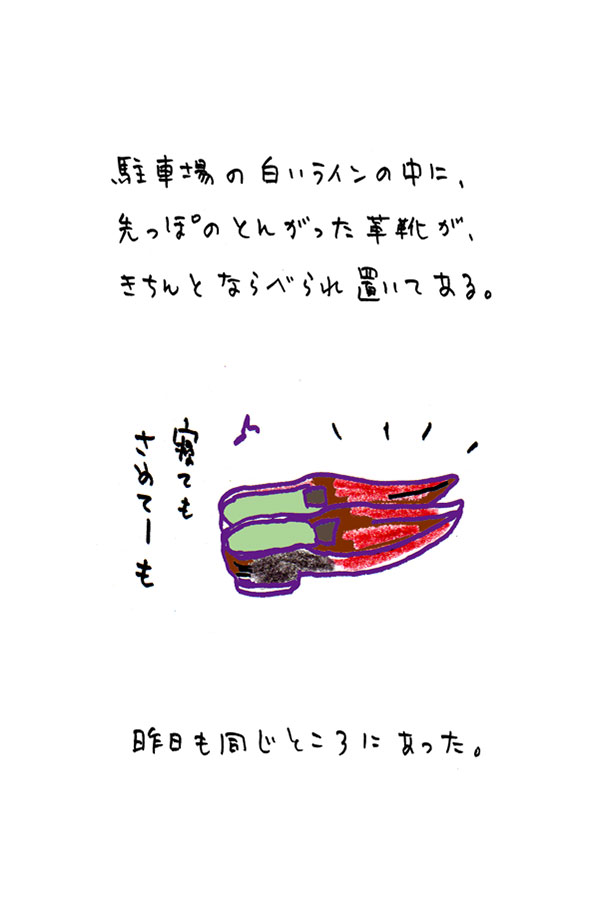 駐車場の白いラインの中に、
先っぽのとんがった革靴が、
きちんとならべられ置いてある。
寝ても
さめてーも
昨日も同じところにあった。